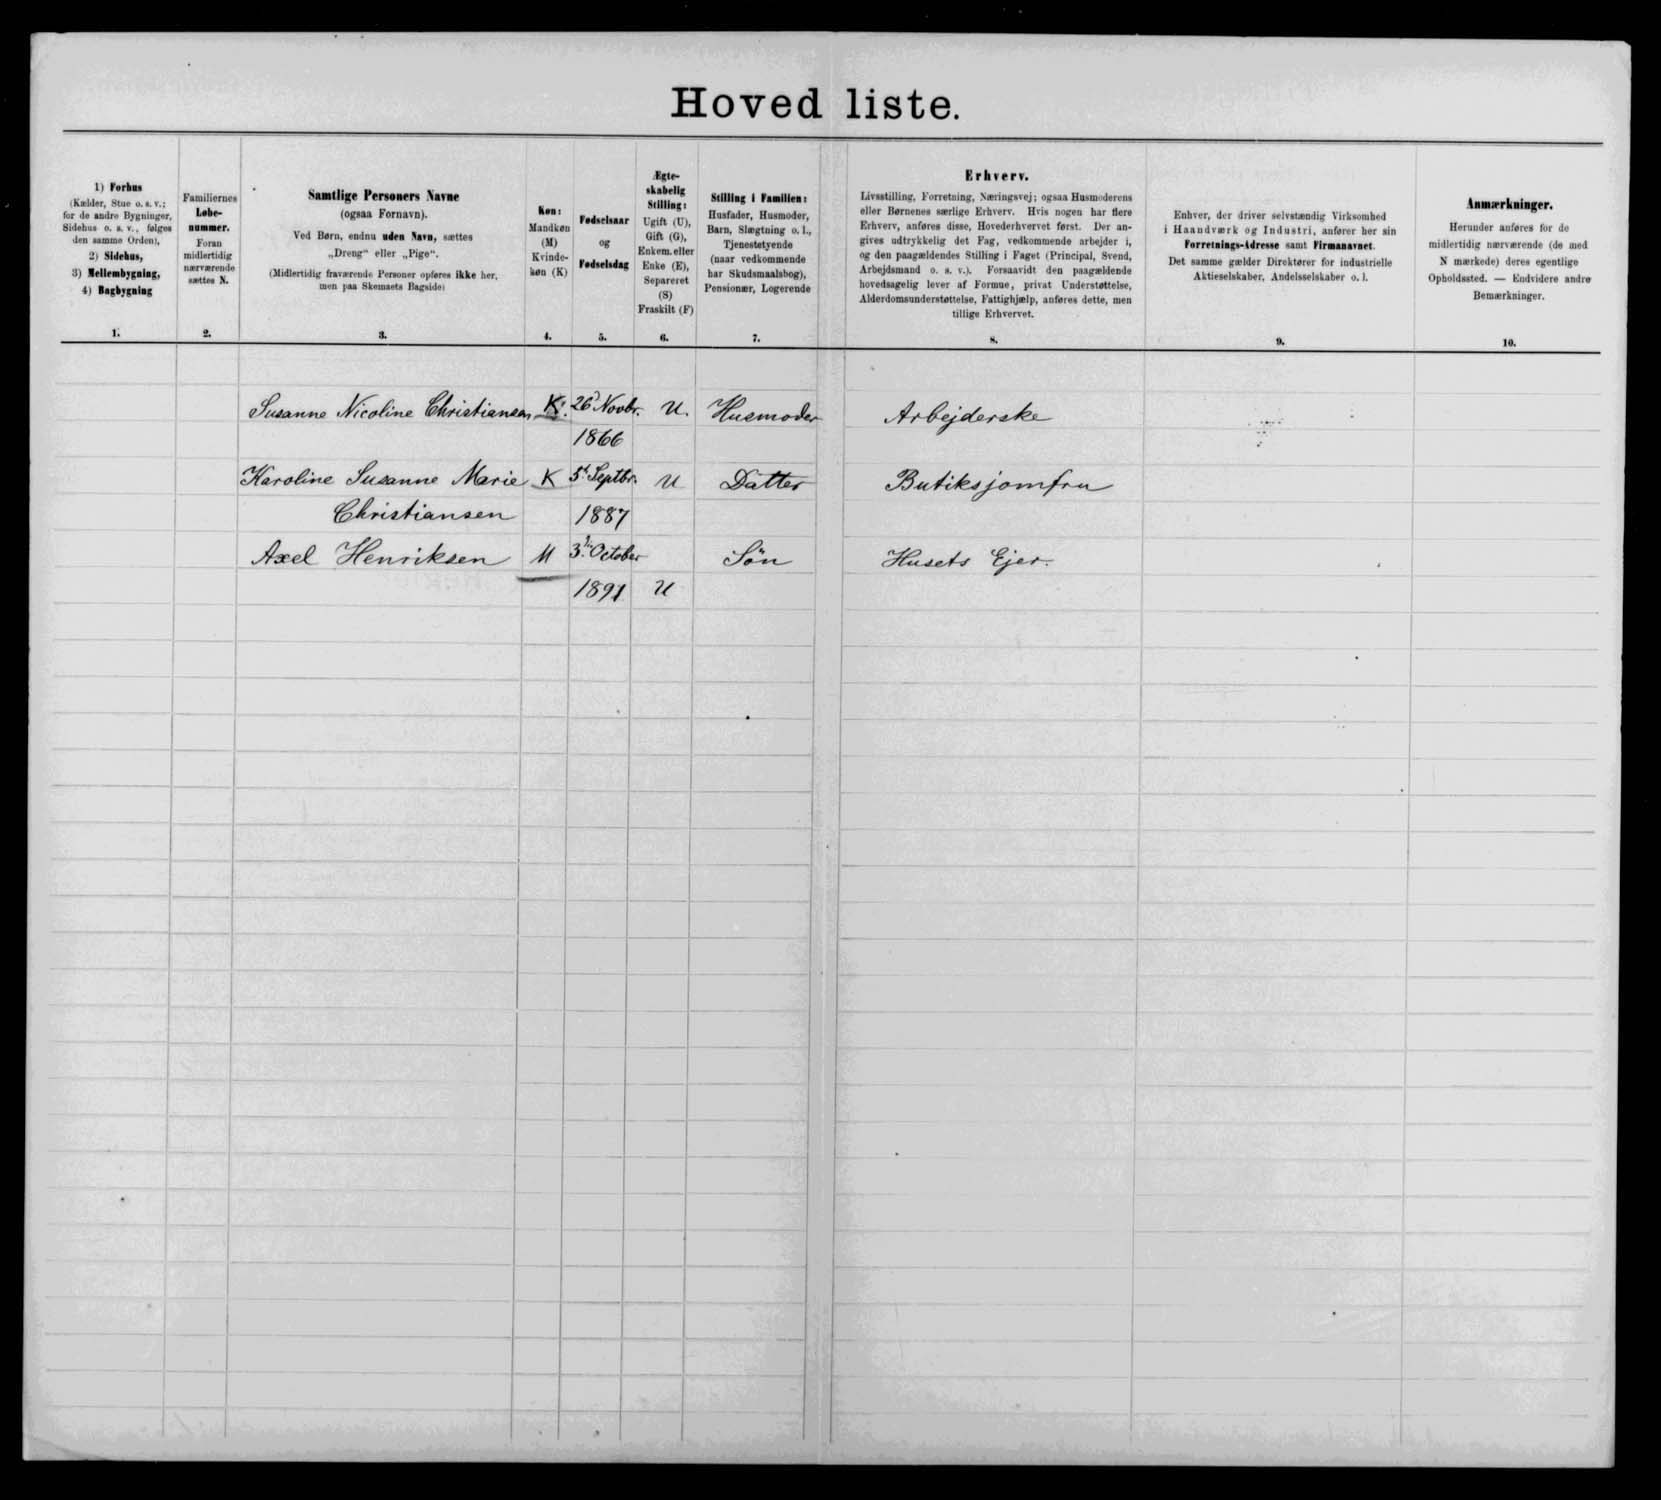 Hoved liste.
1) Forhus
(Kælder, Stue o. s. v.;
for de andre Bygninger,
Sidehus o. s. v., følges
den samme Orden),
2) Sidehus,
3) Mellembygning,
4) Bagbygning
1.
Familiernes
Løbe-
nummer.
Foran
midlertidig
nærværende
sættes N.
2.
Samtlige Personers Navne
(ogsaa Fornavn).
Ved Børn, endnu uden Navn, sættes
„Dreng“ eller „Pige“.
(Midlertidig fraværende Personer opføres ikke her,
men paa Skemaets Bagside)
3.
Køn:
Mandkøn
(M)
Kvinde-
køn (K)
4.
Fødselsaar
og
Fødselsdag
5.
Ægte-
skabelig
Stilling:
Ugift (U),
Gift (G),
Enkem. eller
Enke (E),
Separeret
(S)
Fraskilt (F)
6.
Stilling i Familien:
Husfader, Husmoder,
Barn, Slægtning o. l.,
Tjenestetyende
(naar vedkommende
har Skudsmaalsbog),
Pensionær, Logerende
7.
Erhverv.
Livsstilling, Forretning, Næringsvej; ogsaa Husmoderens
eller Børnenes særlige Erhverv. Hvis nogen har flere
Erhverv, anføres disse, Hovederhvervet først. Der an-
gives udtrykkelig det Fag, vedkommende arbejder i,
og den paagældendes Stilling i Faget (Principal, Svend,
Arbejdsmand o. s. v.). Forsaavidt den paagældende
hovedsagelig lever af Formue, privat Understøttelse,
Alderdomsunderstøttelse, Fattighjælp, anføres dette, men
tillige Erhvervet.
8.
Enhver, der driver selvstændig Virksomhed
i Haandværk og Industri, anfører her sin
Forretnings-Adresse samt Firmanavnet.
Det samme gælder Direktører for industrielle
Aktieselskaber, Andelsselskaber o. l.
9.
Anmærkninger.
Herunder anføres for de
midlertidig nærværende (de med
N mærkede) deres egentlige
Opholdssted. — Endvidere andre
Bemærkninger.
10.
Susanne Nicoline Christiansen K. 26 Novbr. U. Husmoder Arbejderske
1866
Karoline Susanne Marie K 5 Septbr. U Datter Butiksjomfru
Christiansen 1887
Axel Henriksen M 3 October Søn Husets Ejer.
1891 U